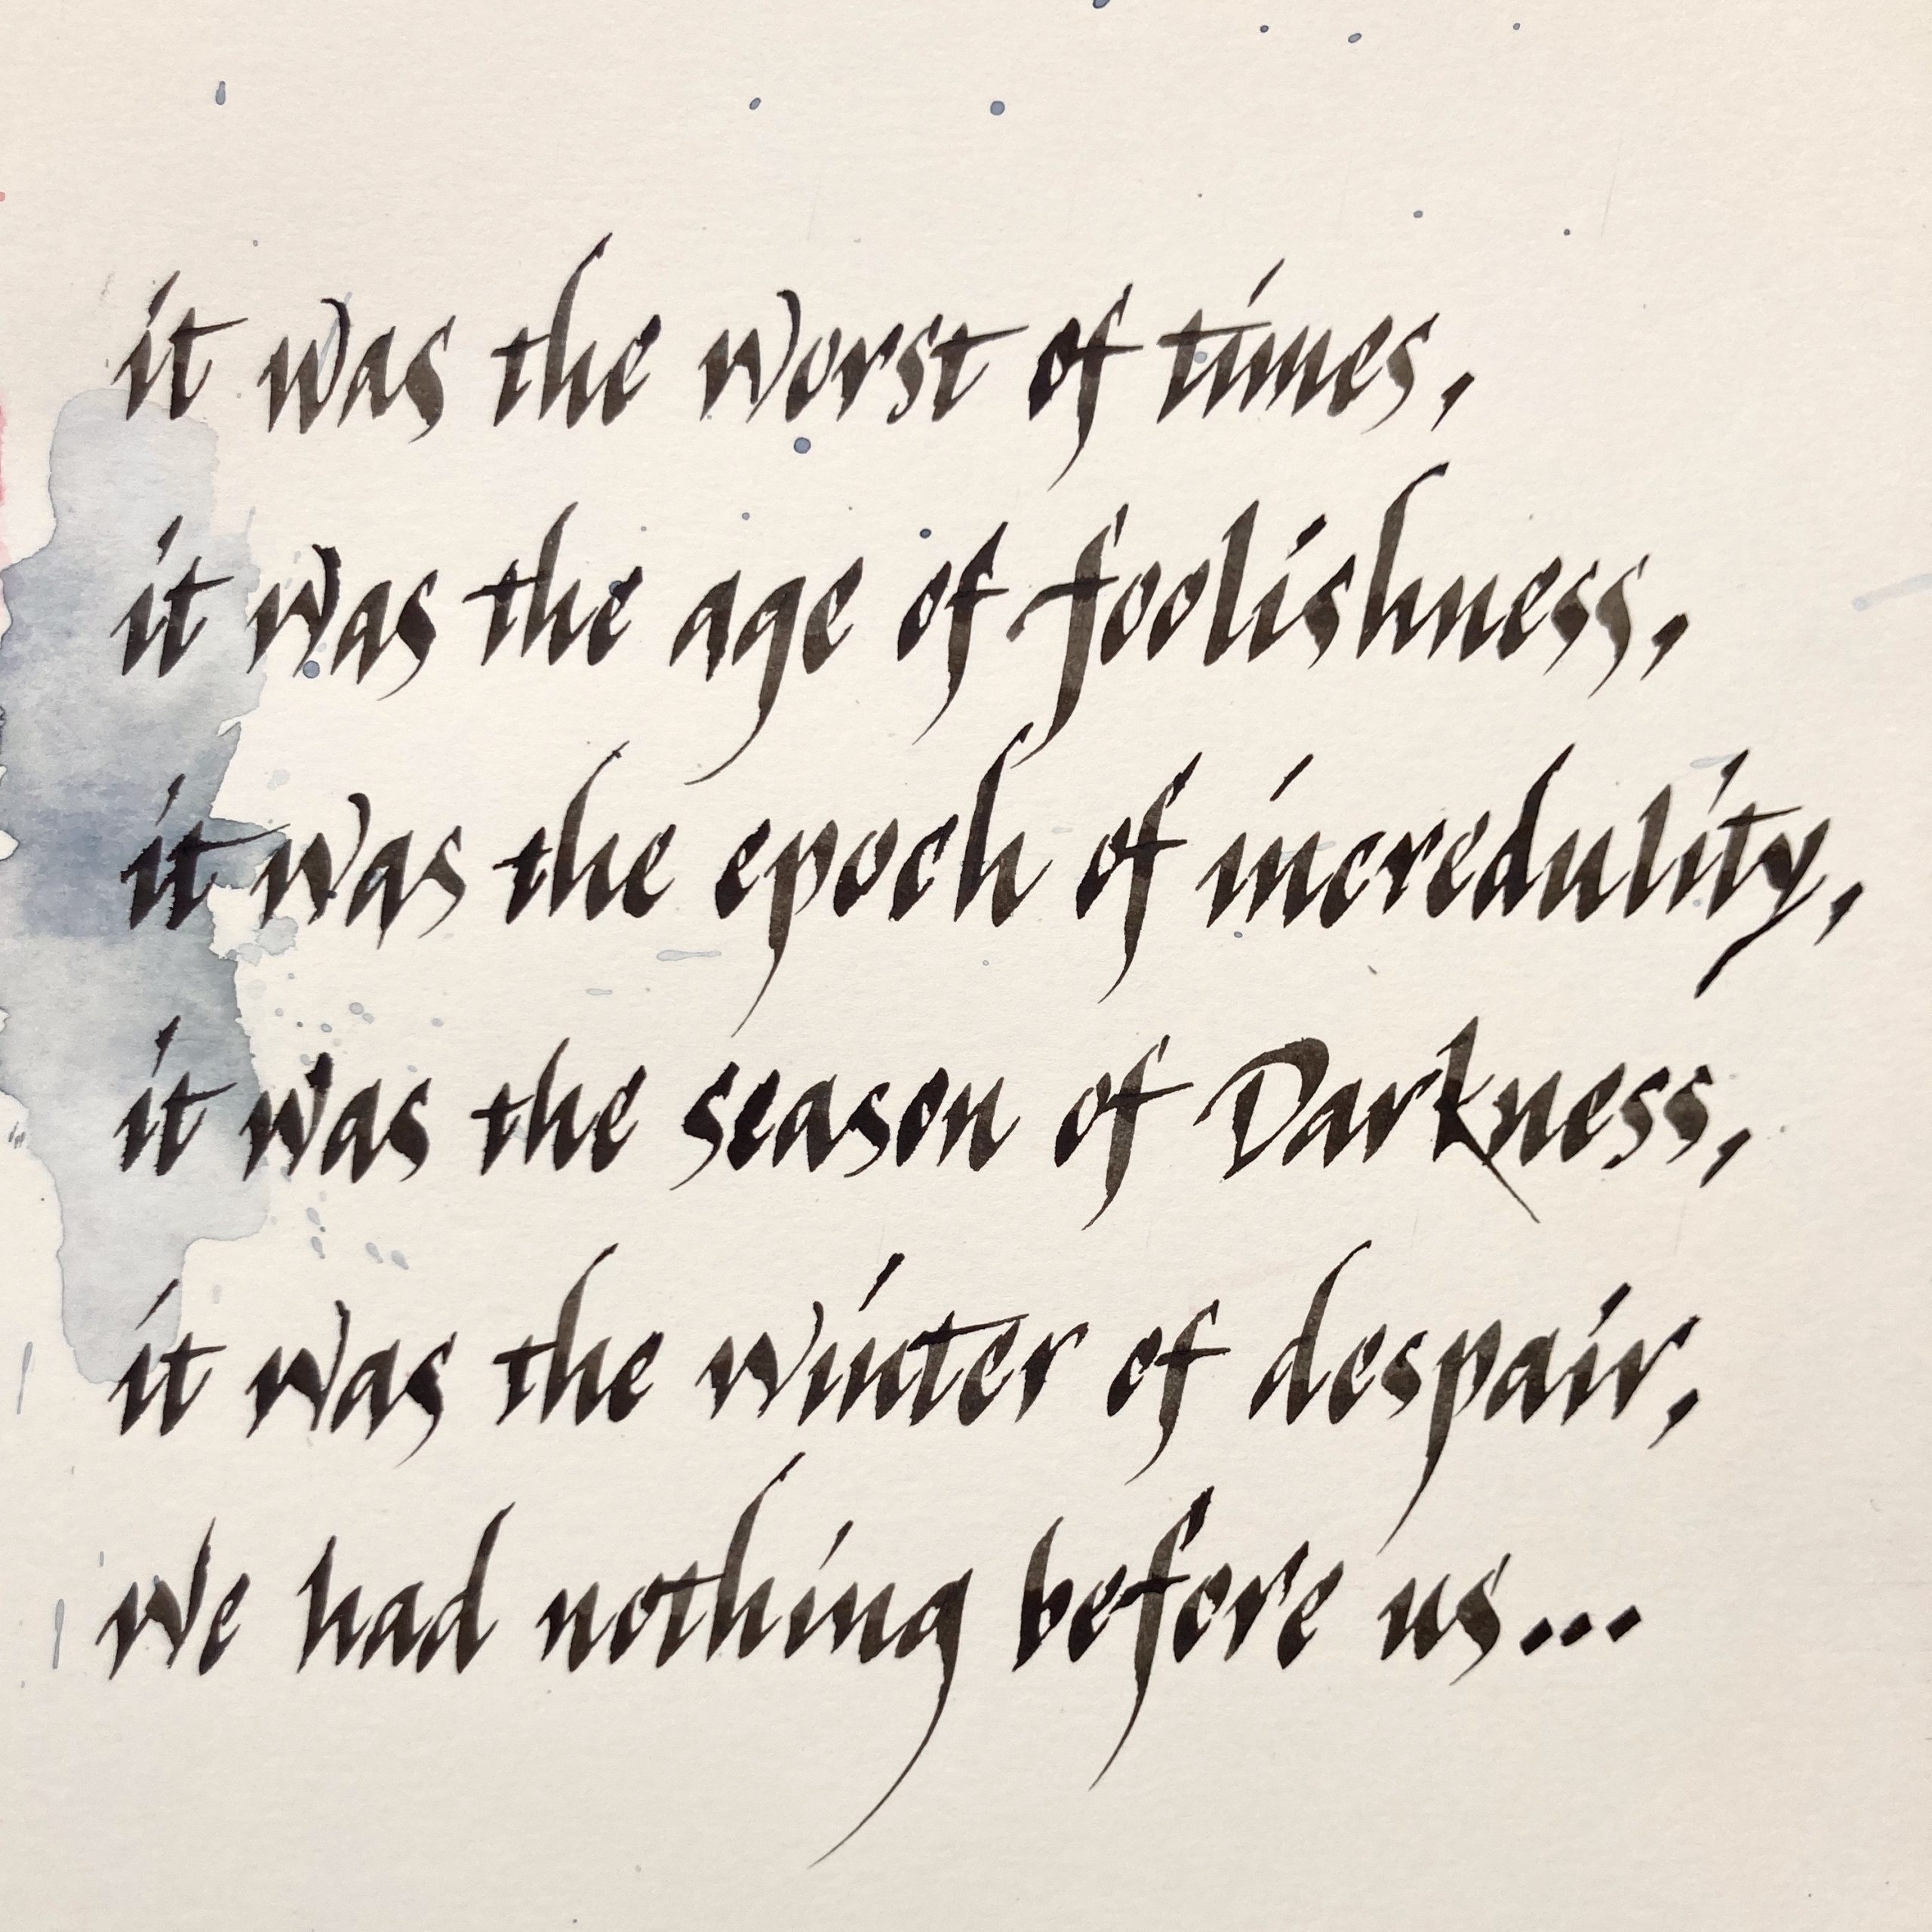 it was the worst of times,
it was the age of foolishness,
it was the epoch of incredulity,
it was the season of Darkness,
it was the winter of despair,
We had nothing before us...